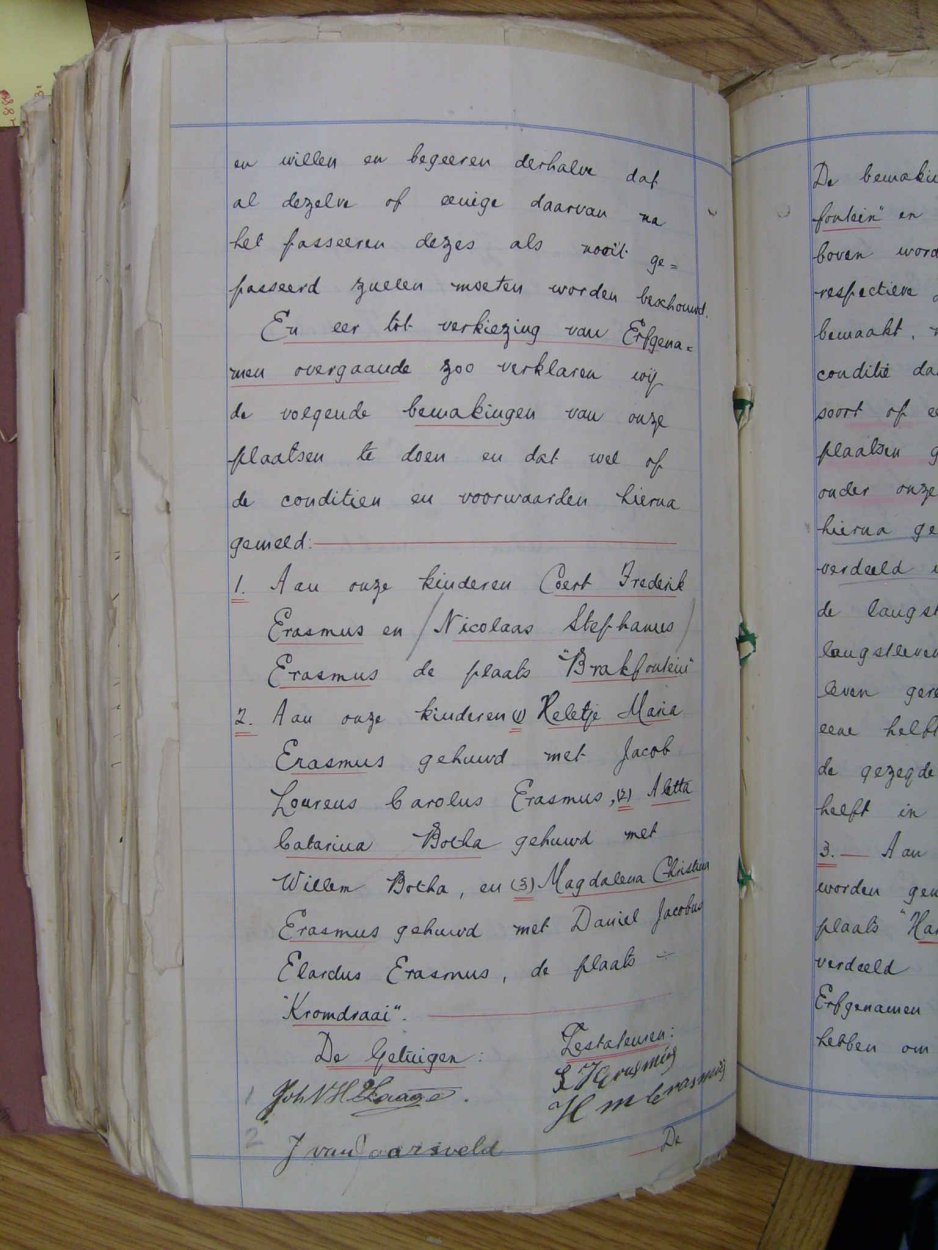 en willen en begeeren derhalve dat
al dezelve of eenige daarvan na
het passeeren dezes als nooit ge=
passeerd zullen moeten worden beschouwd.
En eer tot verkiezing van Erfgena=
men overgaande zoo verklaren wij
de volgende bemakingen van onze
plaatsen te doen en dat wel of
de conditien en voorwaarden hierna
gemeld:
1. Aan onze kinderen Coert Frederik
Erasmus en Nicolaas Stephanus
Erasmus de plaats "Brakfontein"
2. Aan onze kinderen (1) Heletje Maria
Erasmus gehuwd met Jacob
Lourens Carolus Erasmus, (2) Aletta
Catarina Botha gehuwd met
Willem Botha, en (3) Magdalena Christina
Erasmus gehuwd met Daniel Jacobus
Elardus Erasmus, de plaats —
"Kromdraai".
De Getuigen: Testateuren:
1
2 J van Jaarsveld
H M Erasmus
De
De bemakin
fontein" en
boven word
respectieve
bemaakt,
conditie da
soort of ee
plaatsen g
onder onze
hierna ge
verdeeld
de langst
langstleven
leven gere
eene helft
de gezegde
helft in
3. — Aan
worden gem
plaats "Har
verdeeld
Erfgenamen
hebben om